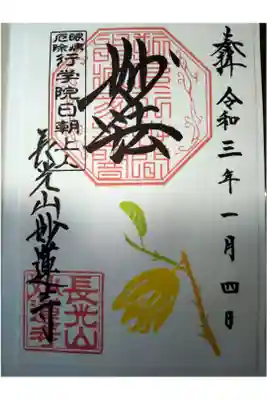 奉拝 令和三年一月四日
妙法
眼病
厄除
行学院日朝上人
長光山妙蓮寺
長光山